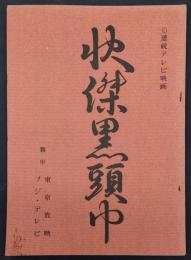 連続テレビ映画
快傑黒頭巾
製作
東京放映
フジ・テレビ